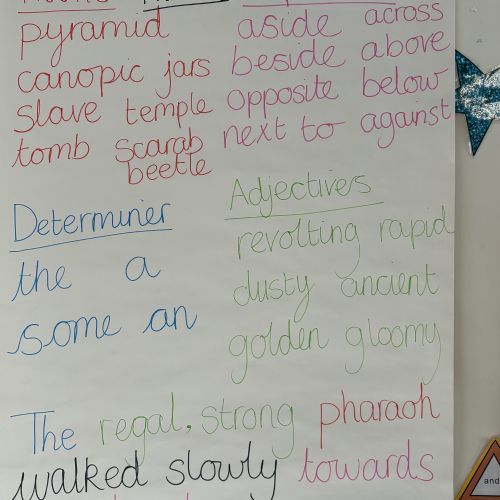 pyramid
canopic jars
slave temple
tomb scarab
beetle
aside across
beside above
opposite below
next to against
Determiner
the a
some an
Adjectives
revolting rapid
dusty ancient
golden gloomy
The regal, strong pharaoh
walked slowly towards
and